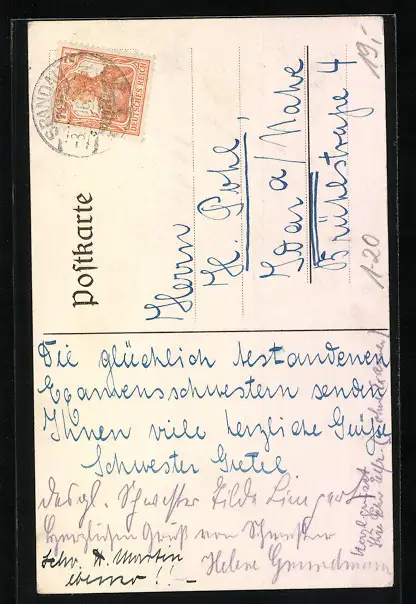 Postkarte
SPANDAU
DEUTSCHES REICH
19,-
Herrn
H. Pohl,
Idar a/Nahe
Brühlstraße 4
1-20
Die glücklich bestandenen
Examensschwestern senden
Ihnen viele herzliche Grüße
Schwester Gretel
desgl. Schwester Tilde
Herzlichen Gruß von Schwester
Helene Grundmann
Schw. H. Martin
ebenso! -